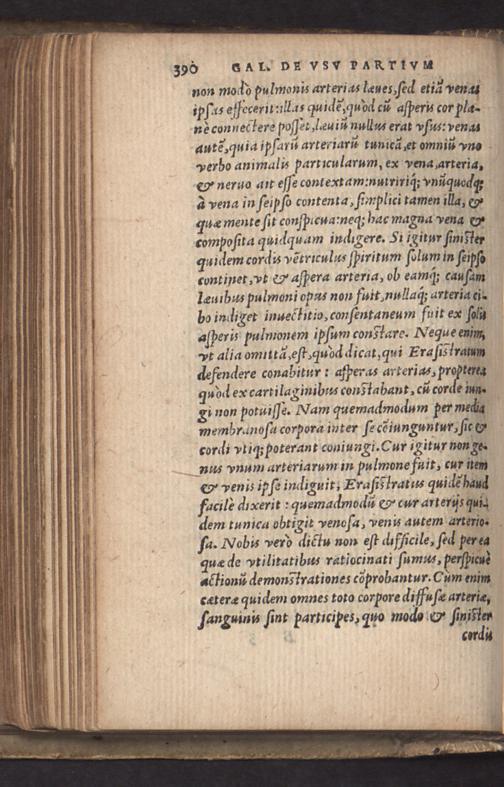 390 GAL. DE VSV PARTIVM
non modò pulmonis arterias læues, sed etiã venas
ipsas effecerit: illas quidẽ, quòd cũ asperis cor pla-
nè connectere posset, læuiũ nullus erat vsus: venas
autẽ, quia ipsarũ arteriarũ tunicã, et omniũ vno
verbo animalis particularum, ex vena, arteria,
& neruo ait esse contextam: nutririq; vnũquodq;
à vena in seipso contenta, simplici tamen illa, &
quæ mente sit conspicua: neq; hac magna vena &
composita quidquam indigere. Si igitur sinister
quidem cordis vẽtriculus spiritum solum in seipso
continet, vt & aspera arteria, ob eamq; causam
læuibus pulmoni opus non fuit, nullaq; arteria ci-
bo indiget inuectitio, consentaneum fuit ex solis
asperis pulmonem ipsum constare. Neque enim,
vt alia omittã, est, quòd dicat, qui Erasistratum
defendere conabitur: asperas arterias, propterea
quòd ex cartilaginibus constabant, cũ corde iun-
gi non potuisse. Nam quemadmodum per media
membranosa corpora inter se cõiunguntur, sic &
cordi vtiq; poterant coniungi. Cur igitur non ge-
nus vnum arteriarum in pulmone fuit, cur item
& venis ipse indiguit, Erasistratus quidẽ haud
facilè dixerit: quemadmodũ & cur arterijs qui-
dem tunica obtigit venosa, venis autem arterio-
sa. Nobis verò dictu non est difficile, sed per ea
quæ de vtilitatibus ratiocinati sumus, perspicuè
actionũ demonstrationes cõprobantur. Cùm enim
cæteræ quidem omnes toto corpore diffusæ arteriæ,
sanguinis sint participes, quo modo & sinister
cordis